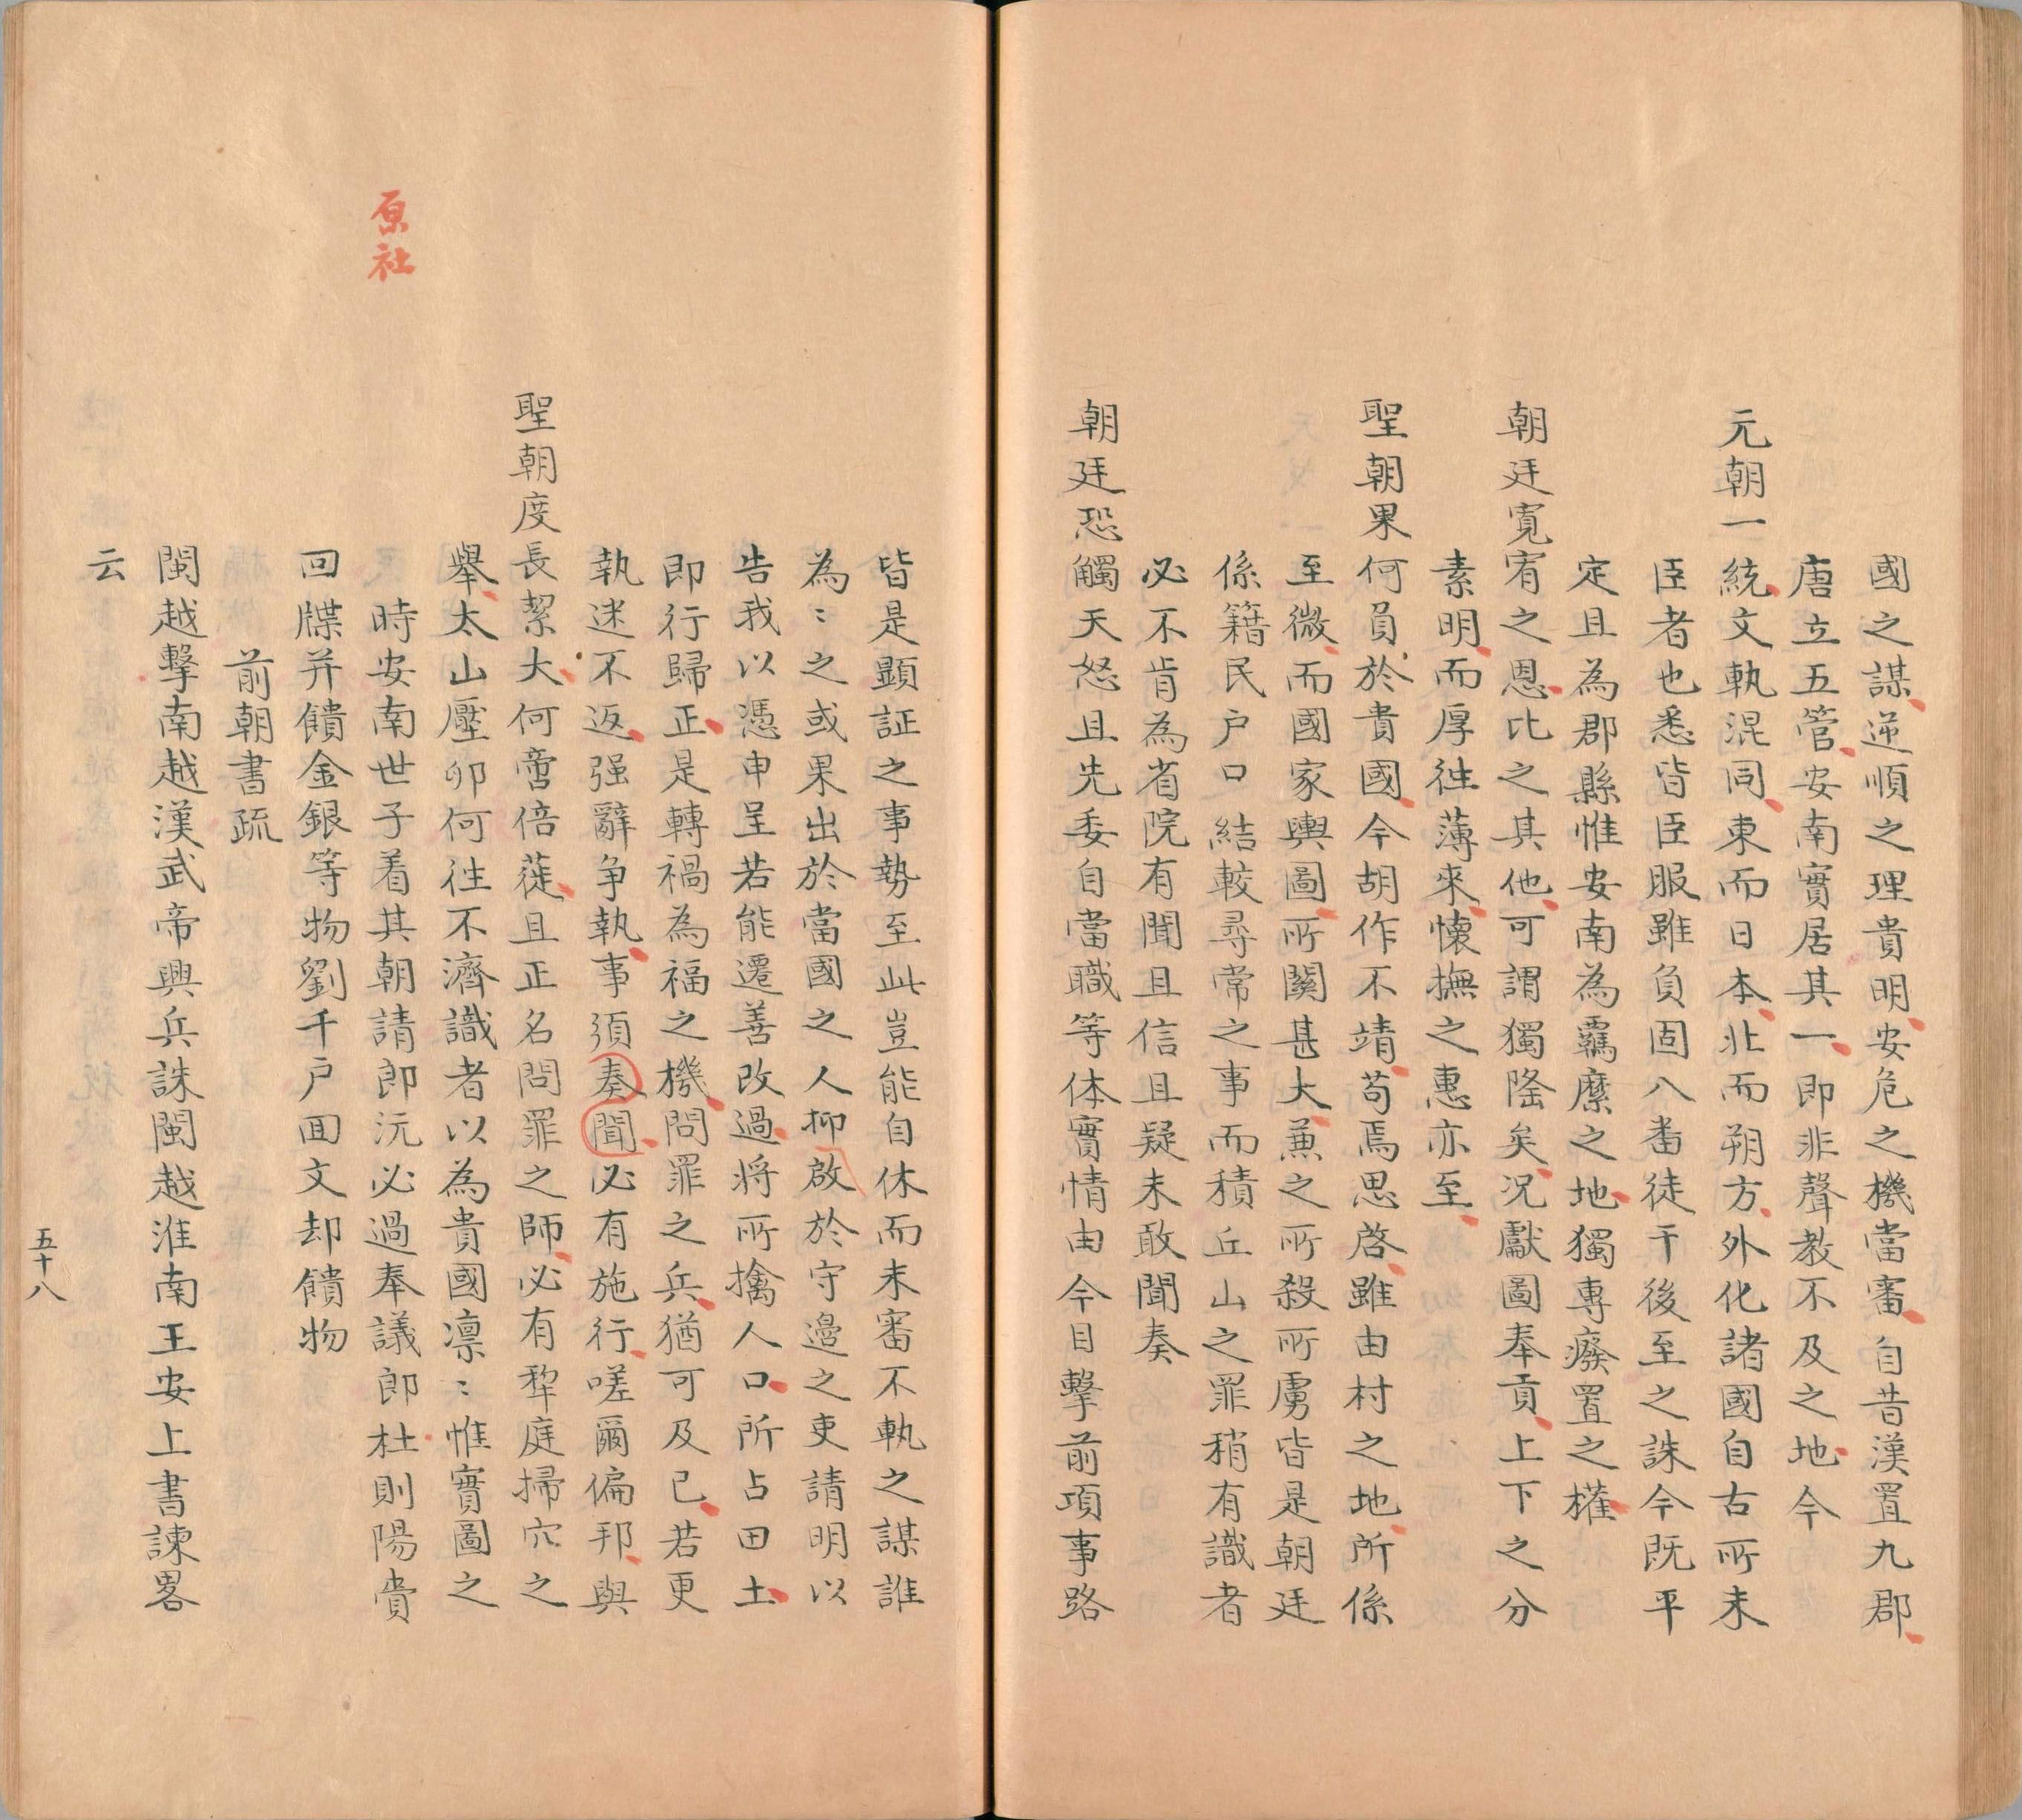 國之謀逆順之理貴明安危之機當審自昔漢置九郡
唐立五管安南實居其一即非聲教不及之地今
元朝一統文軌混同東而日本北而朔方外化諸國自古所未
臣者也悉皆臣服雖負固八畨徒干後至之誅今既平
定且為郡縣惟安南為羈縻之地獨專癈置之權
朝廷寛宥之恩比之其他可謂獨隆矣况獻圖奉貢上下之分
素明而厚徃薄來懷撫之惠亦至
聖朝果何負於貴國今胡作不靖苟焉思啓雖由村之地所係
至微而國家輿圖所關甚大兼之所殺所虜皆是朝廷
係籍民户口結較尋常之事而積丘山之罪稍有識者
必不肯為省院有聞且信且疑未敢聞奏
朝廷恐觸天怒且先委自當職等体實情由今目擊前項事路
皆是顕証之事勢至此豈能自休而未審不軌之謀誰
為〻之或果出於當國之人抑啟於守邉之吏請明以
告我以憑申呈若能遷善改過將所擒人口所占田土
即行歸正是轉禍為福之機問罪之兵猶可及已若更
執迷不返强辭争執事須奏聞必有施行嗟爾偏邦與
聖朝度長絜大何啻倍蓰且正名問罪之師必有犂庭掃穴之
舉太山壓卵何徃不濟識者以為貴國凛〻惟實圖之
時安南世子着其朝請郎沅必過奉議郎杜則陽賫
回牒并饋金銀等物劉千户囬文却饋物
前朝書疏
閩越擊南越漢武帝興兵誅閩越淮南王安上書諫畧
云
原社
五十八